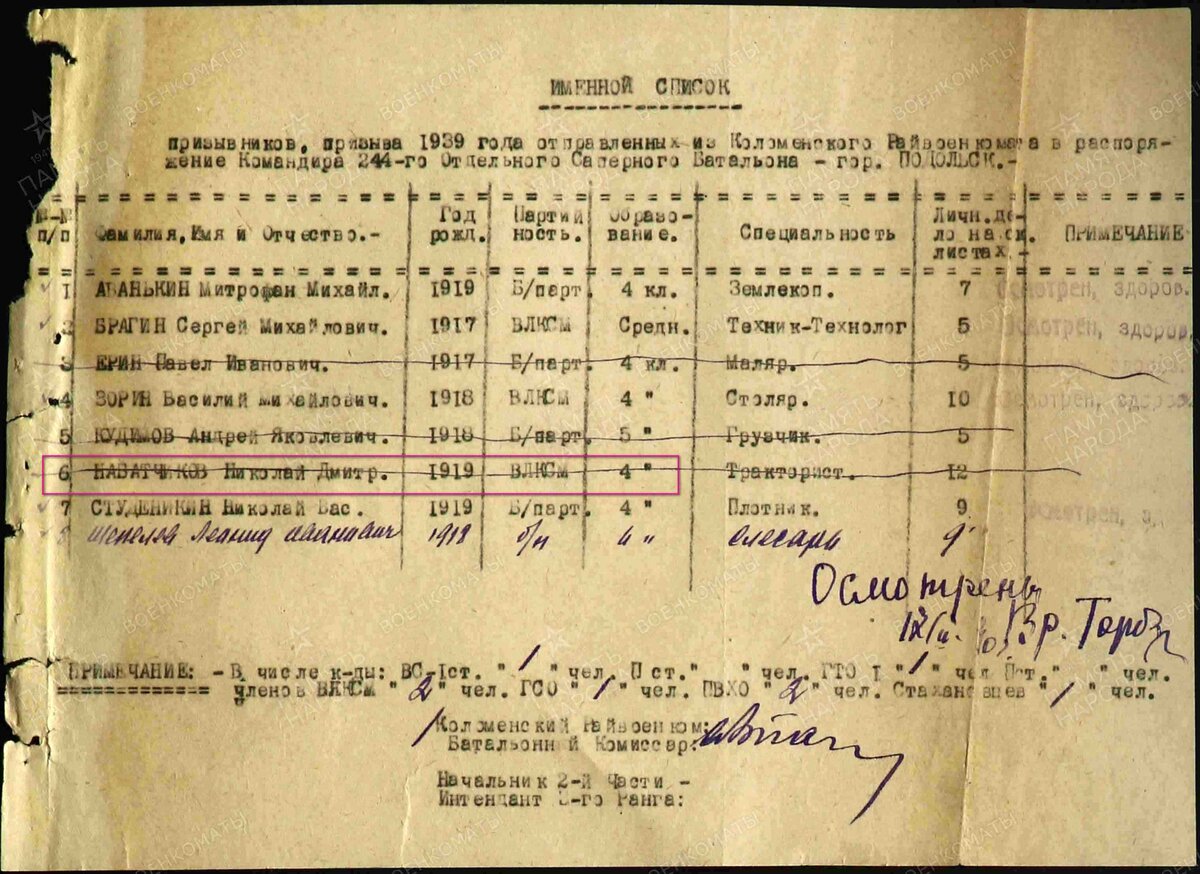 ИМЕННОЙ СПИСОК
призывников, призыва 1939 года отправленных из Коломенского Райвоенкомата в распоря-
жение Командира 244-го Отдельного Саперного Батальона - гор. ПОДОЛЬСК.-
№-№ п/п Фамилия, Имя и Отчество.- Год рожд. Партий ность. Образо- вание. Специальность Личн.де- ло на ск. листах.- ПРИМЕЧАНИЕ
1 АБАНЬКИН Митрофан Михайл. 1919 Б/парт. 4 кл. Землекоп. 7 Осмотрен, здоров.
2 БРАГИН Сергей Михайлович. 1917 ВЛКСМ Средн. Техник-Технолог 5 Осмотрен, здоров.
3 ЕРИН Павел Иванович. 1917 Б/парт. 4 кл. Маляр. 5
4 ЗОРИН Василий Михайлович. 1918 ВЛКСМ 4 " Столяр. 10 Осмотрен, здоров.
5 КУДИМОВ Андрей Яковлевич. 1918 Б/парт. 5 " Грузчик. 5
6 НАБАТЧИКОВ Николай Дмитр. 1919 ВЛКСМ 4 " Тракторист. 12
7 СТУДЕНИКИН Николай Вас. 1919 Б/парт. 4 " Плотник. 9 Осмотрен, зд
8 Шепелев Леонид Иванович 1918 б/п 4 " слесарь 9
Осмотрены
Вр.
ПРИМЕЧАНИЕ: - В числе к-ды: ВС-Iст. " 1 " чел. П ст." " чел. ГТО I " 1 " чел Пст. " " чел.
членов ВЛКСМ " 2 " чел. ГСО " 1 " чел. ПВХО " 2 " чел. Стахановцев " 1 " чел.
Коломенский Райвоенком:
Батальонный Комиссар:
Начальник 2-й Части -
Интендант 3-го Ранга: